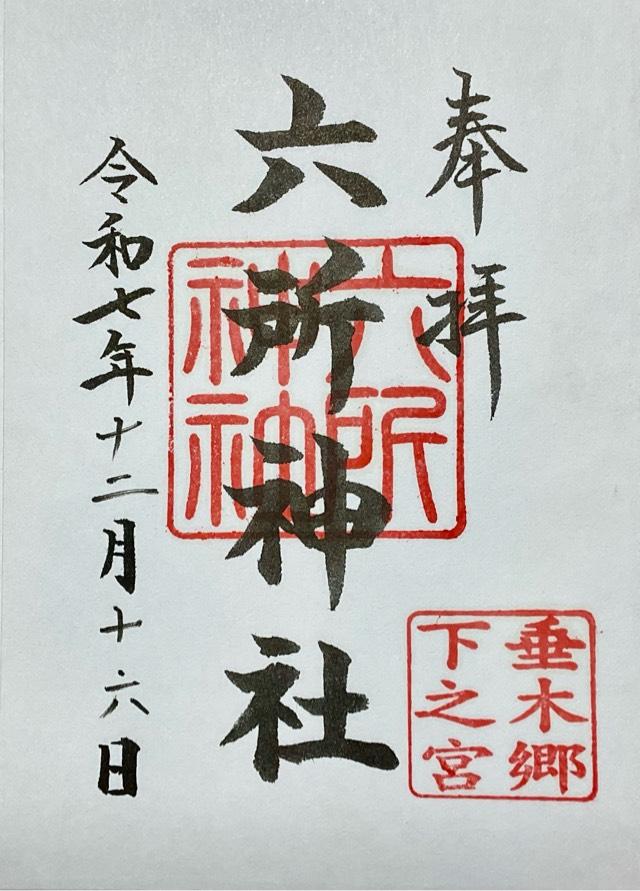 奉拝
六所神社
令和七年十二月十六日
垂木郷
下之宮